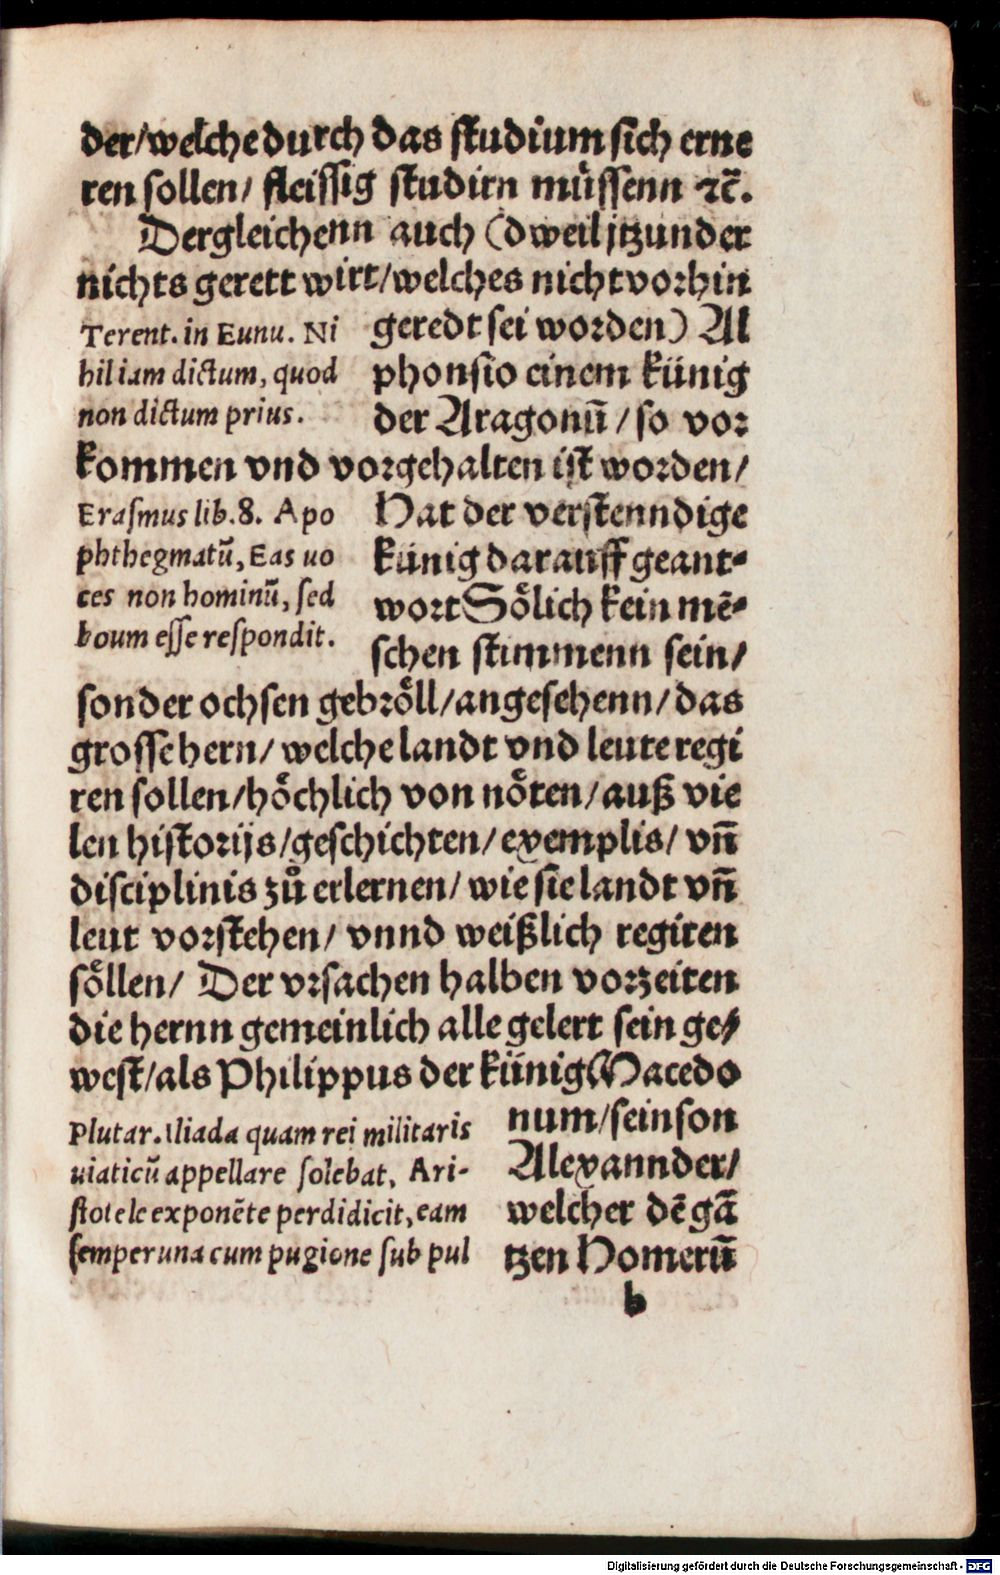 der/welche durch das studium sich erne
ren sollen/ fleissig studirn müssenn ꝛc̄.
Dergleichenn auch (dweil jtzunder
nichts gerett wirt/welches nicht vorhin
Terent. in Eunu. Ni
hil iam dictum, quod
non dictum prius.
geredt sei worden) Al
phonsio einem künig
der Aragonū/so vor
kommen vnd vorgehalten ist worden/
Erasmus lib. 8. Apo
phthegmatū, Eas uo
ces non hominū, sed
boum esse respondit.
Hat der verstenndige
künig darauff geant-
wort Sölich kein mē-
schen stimmenn sein/
sonder ochsen gebröll/angesehenn/das
grosse hern/ welche landt vnd leute regi
ren sollen/höchlich von nöten/auß vie
len historijs/geschichten/exemplis/ vñ
disciplinis zů erlernen/ wie sie landt vñ
leut vorstehen/ vnnd weißlich regiren
söllen/ Der vrsachen halben vorzeiten
die hernn gemeinlich alle gelert sein ge/
west/als Philippus der künig Macedo
Plutar. Iliada quam rei militaris
uiaticū appellare solebat, Ari-
stotele exponēte perdidicit, eam
semper una cum pugione sub pul
num/sein son
Alexannder/
welcher dē gā
tzen Homerū
b
Digitalisierung gefördert durch die Deutsche Forschungsgemeinschaft - DFG